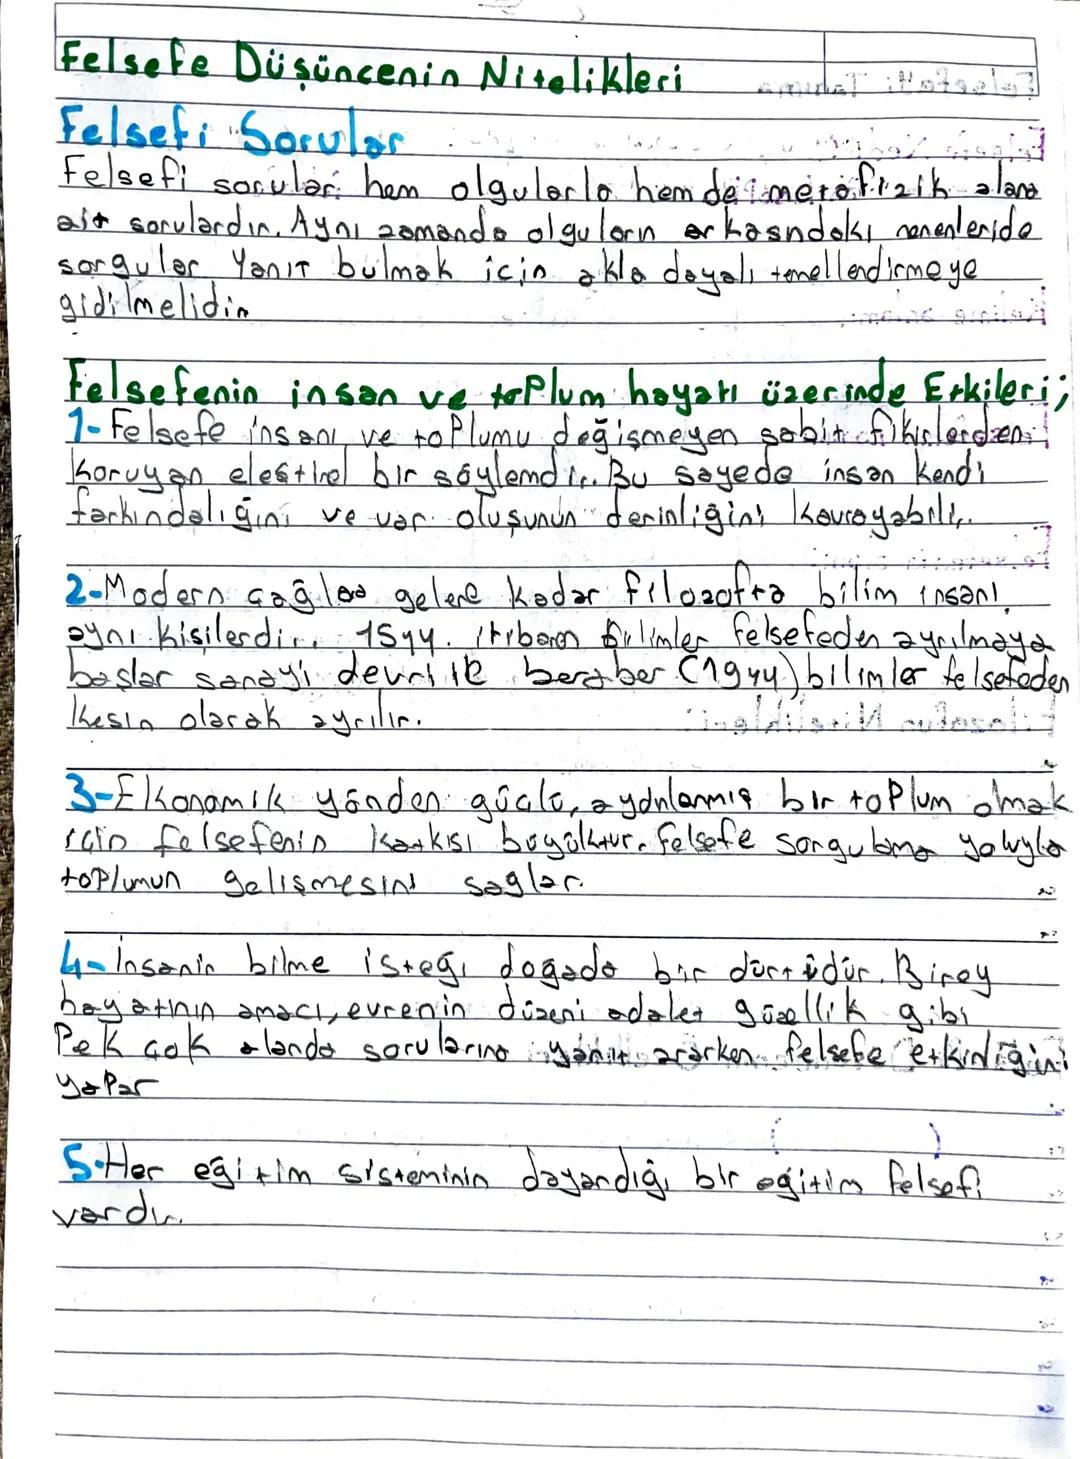 Felsefe Düşüncenin Nitelikleri
Felsefi Sorular
Felsefi sorular hem olgularla hem de metafizik alana
ait sorulardır. Aynı zamanda olguların arkasındaki nenenleride
sorgular Yanıt bulmak için akla dayalı temellendirmeye
gidilmelidir
Felsefenin insan ve toplum hayatı üzerinde Etkileri;
1- Felsefe insanı ve toplumu değişmeyen sabit fikirlerden
koruyan eleştirel bir söylemdir. Bu sayede insan kendi
farkındalığını ve var oluşunun derinliğini kavrayabilir.
2-Modern çağlara gelene kadar filozofta bilim insanı
aynı kişilerdir. 1544. itibaren bilimler felsefeden ayrılmaya
başlar sanayi devri ile beraber (1944) bilimler felsefeden
kesin olarak ayrılır.
3-Ekonomik yönden güçlü, aydınlanmış bir toplum olmak
için felsefenin katkısı büyüktür. Felsefe sorgulama yoluyla
toplumun gelişmesini sağlar.
4-İnsanin bilme isteği doğada bir dürtüdür. Birey
hayatının amacı, evrenin düzeni adalet güzellik gibi
Pek çok alanda sorularına yanıt ararken felsefe etkinliğini
yapar
5-Her eğitim sisteminin dayandığı bir eğitim felsefi
vardır.